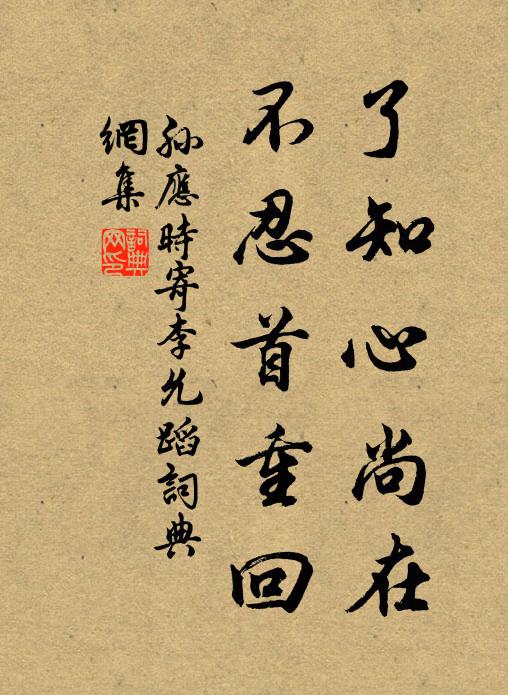 了知心尚在
不忍首重回
孙應時寄李允蹈詞典
網集
詞典
网印